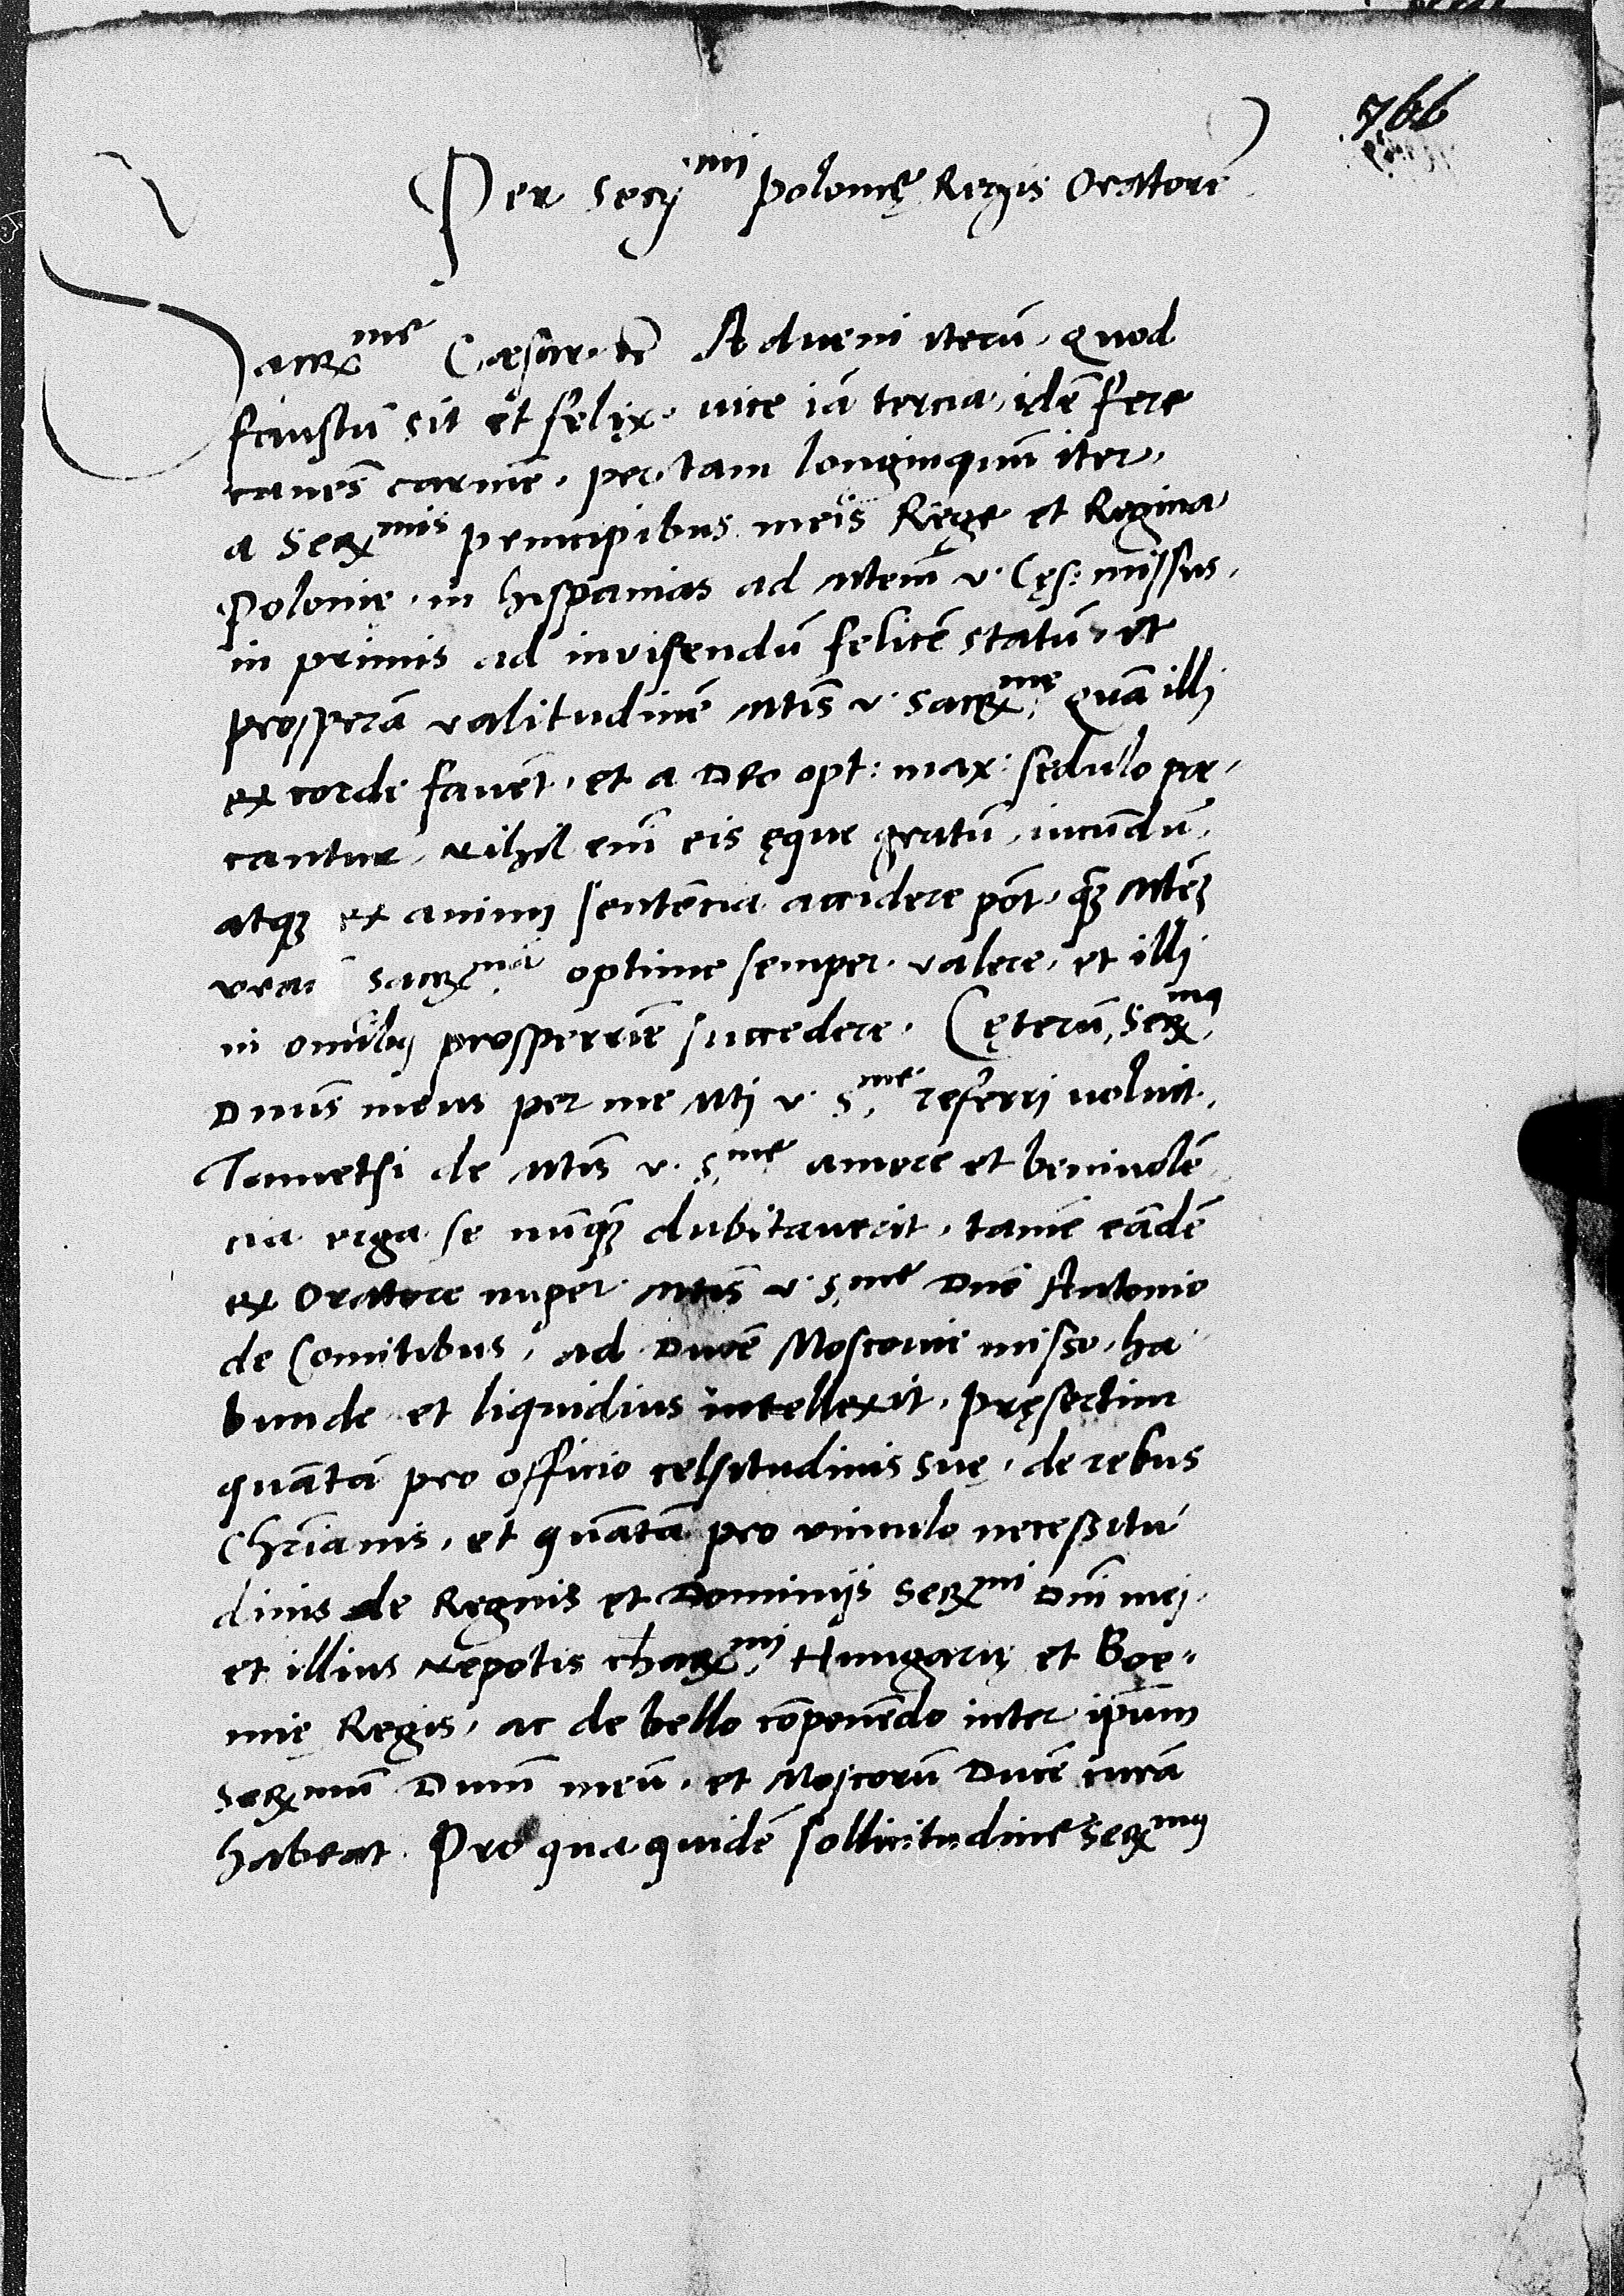 766
Per Ser.mi Polonię Regis Oratorē
Sacr.me Cæsar. etc̄ Adveni iterū, quod
faustū sit et felix, vice iā tercia, idē fere
canēs carmē, per tam longinquū iter,
a Ser.mis principibus meis Rege et Regina
Polonię, in hispanias ad Mtem̄ v. Cęs: missus,
in primis ad invisendū felicē statū, et
prosperā valitudinē Mtis̄ v. Sacr.mę, quā illi
ex corde favēt, et a Deo opt: max: sedulo præ-
cantur, Nihil em̄ eis ęque gratū, iucundū,
atq3 ex animi sentēcia accidere pōt, q̄3 Mtē3
vrām Sacr.mā optime semper valere, et illi
in om̄ibus prosperrīe succedere. Cęterū, Ser.mus
Dnūs meus per me Mti v. S.me referri voluit,
Tametsi de Mtis̄ v. S.mę amore et benivolē-
cia erga se nūq̄3 dubitaverit, tamē eādē
ex Oratore nuper Mtis̄ v. S.mę Dnō Antonio
de Comitibus, ad Ducē Moscovię misso, ha-
bunde et liquidius intellexit, pręsertim
quātā pro officio celsitudinis suę, de rebus
Chr̄ianis, et quātā pro vinculo necessitu-
dinis de Regnis et Dominijs Ser.mi Dnī mei,
et illius Nepotis char.mi Hungarię et Boe-
mię Regis, ac de bello cōponēdo inter ip̄um
Ser.mum̄ Dnūm meū, et Moscorū Ducē curā
habeat. Pro qua quidē sollicitudine Ser.mus